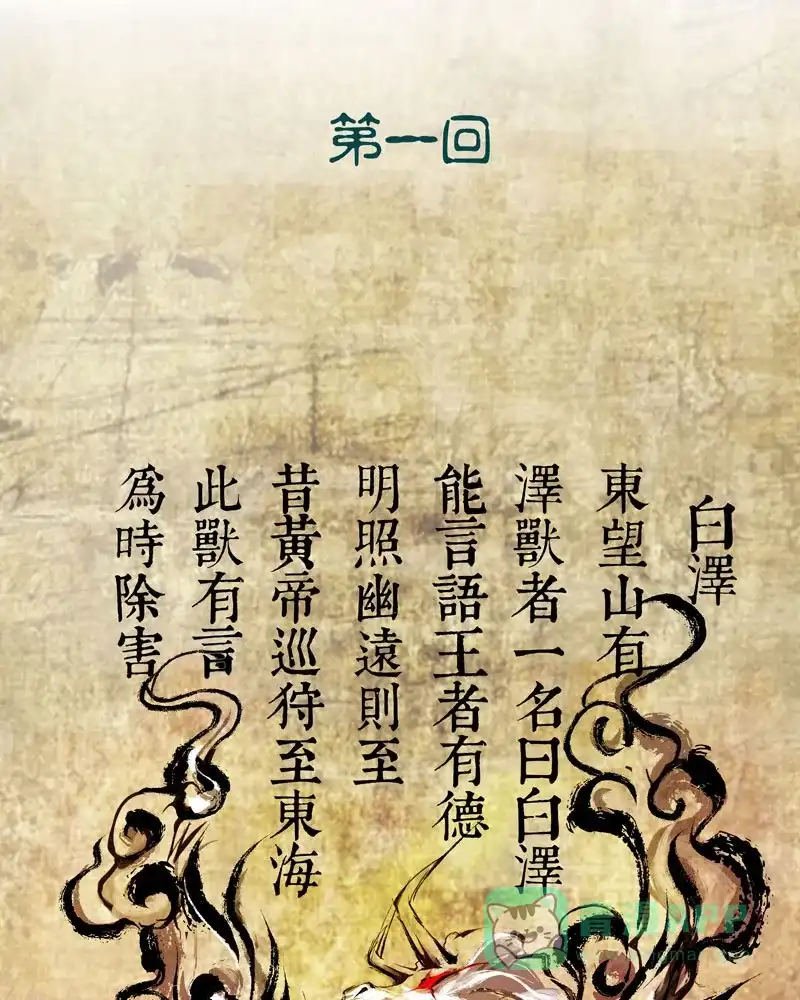 第一回
白澤
東望山有
澤獸者一名曰白澤
能言語王者有德
明照幽遠則至
昔黃帝巡狩至東海
此獸有言
為時除害